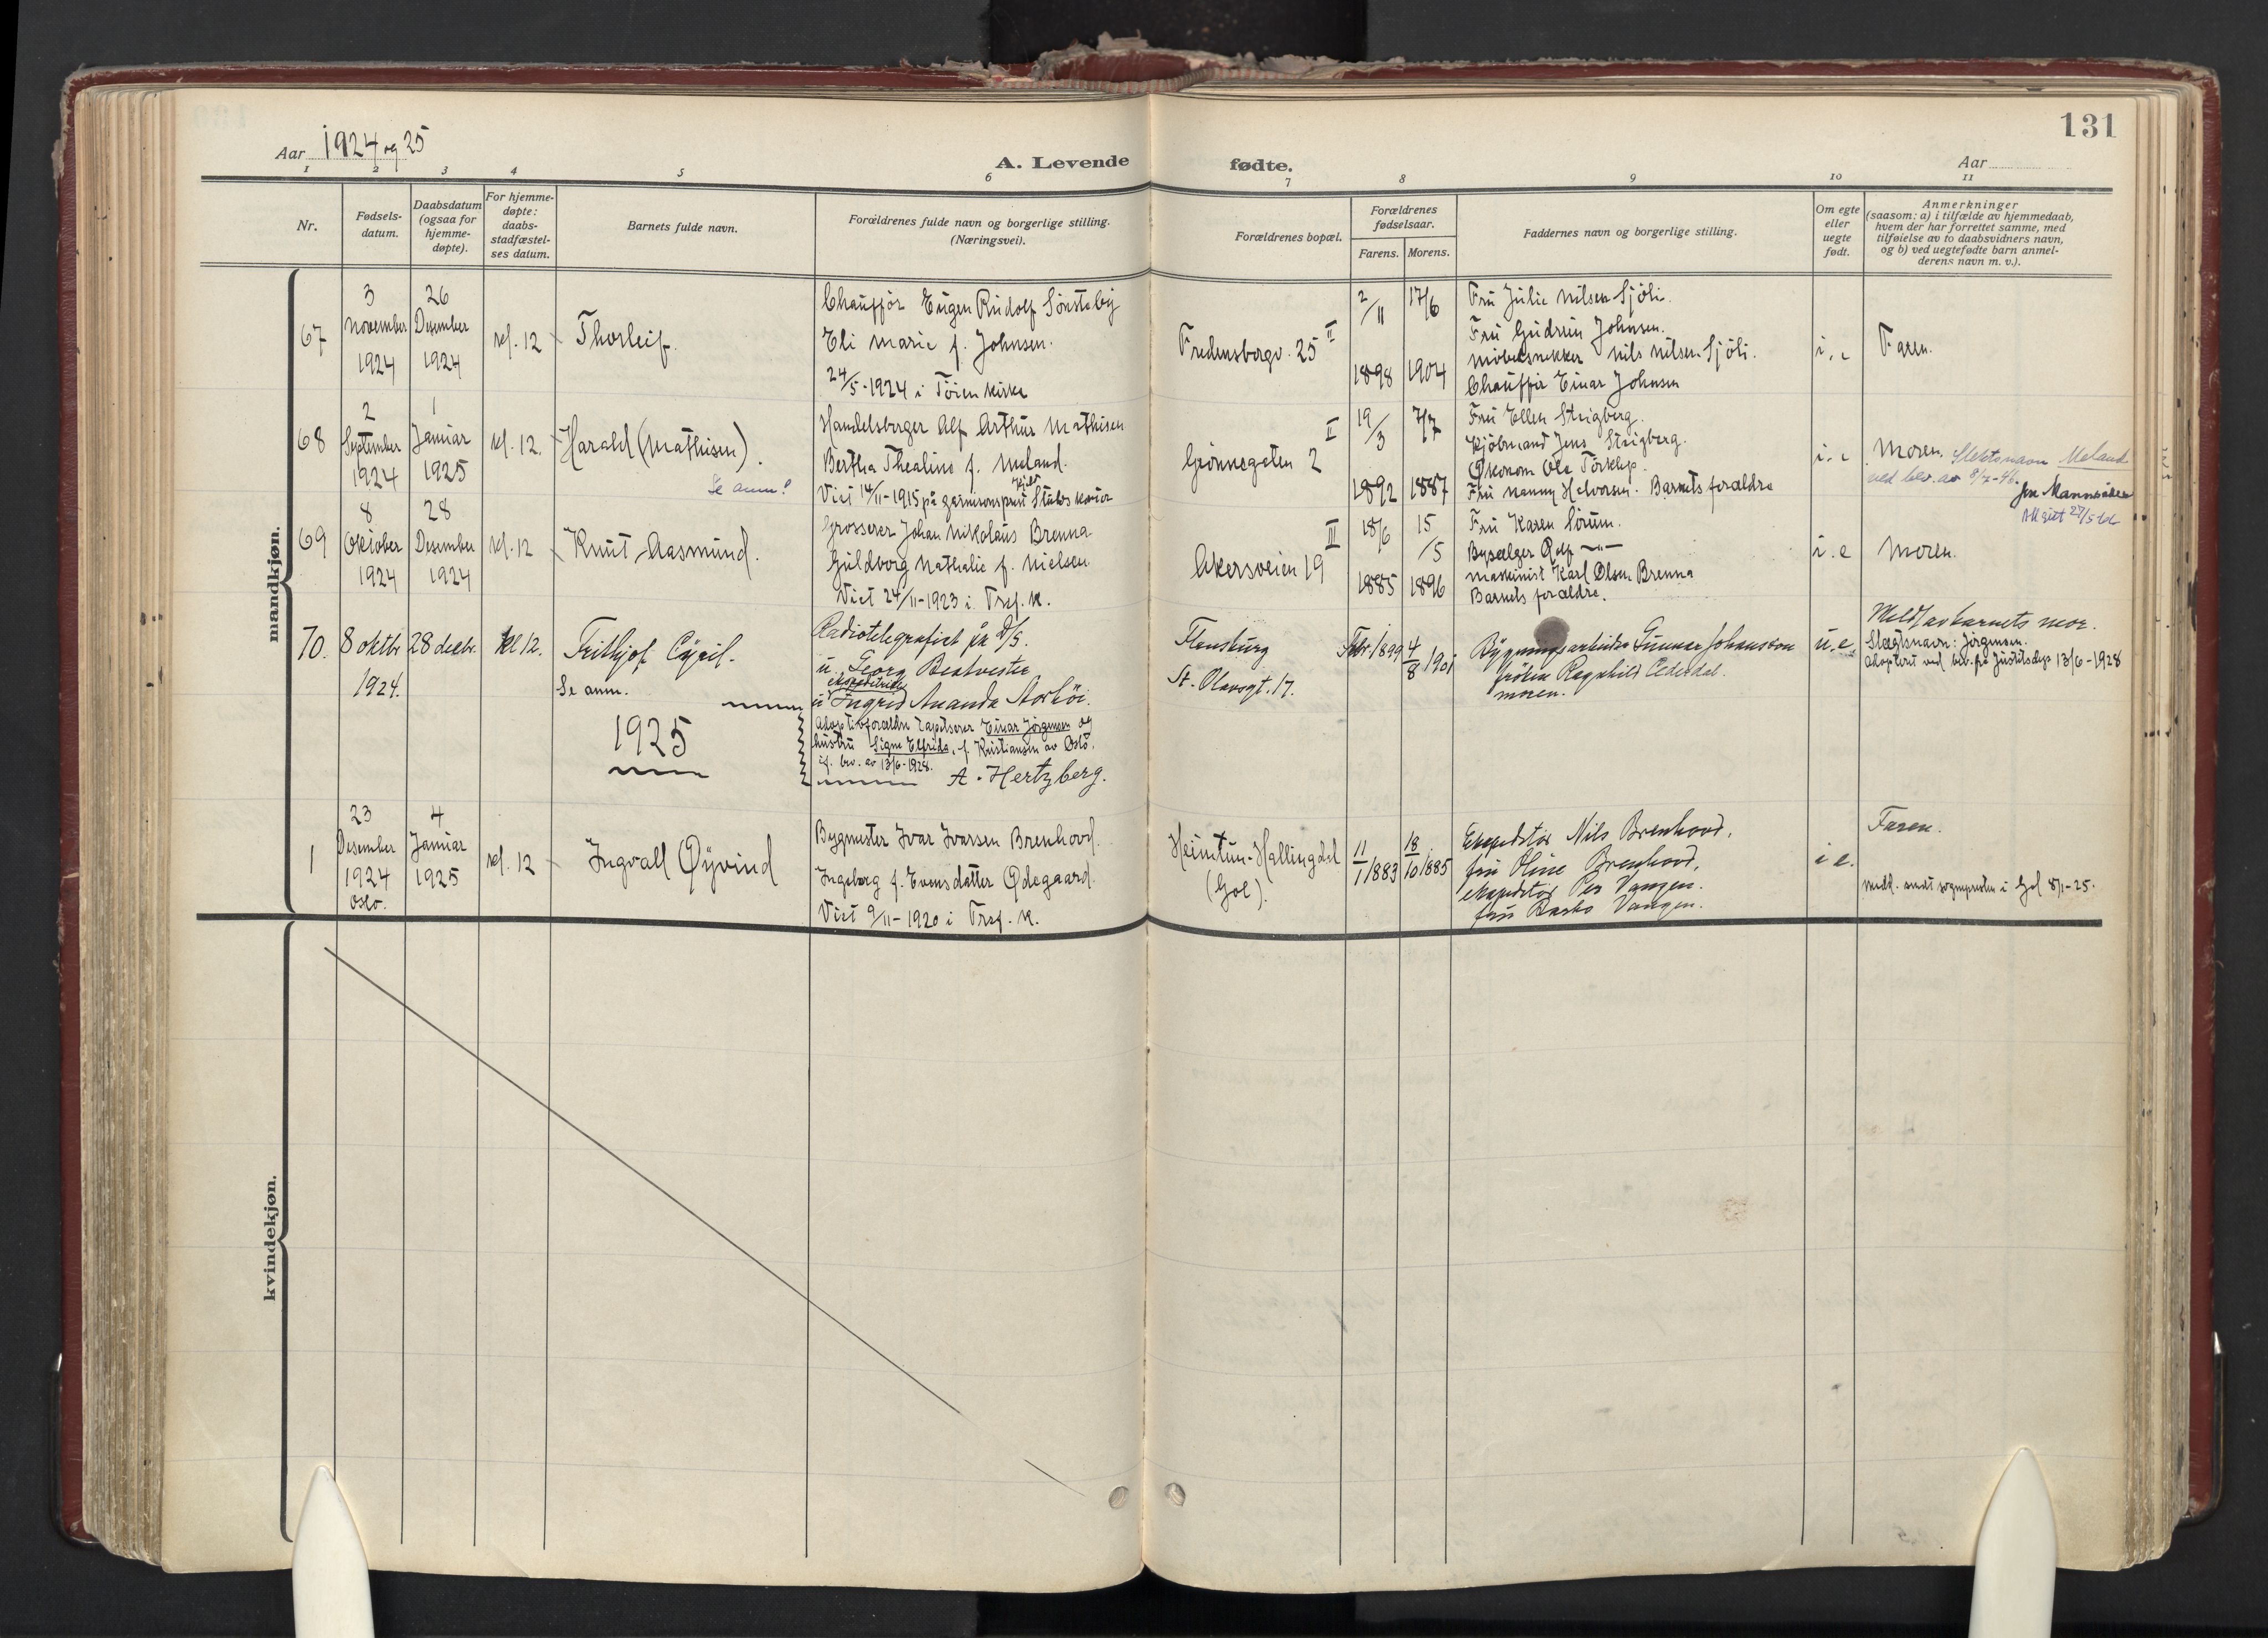 131
Aar 1924 og 25
A. Levende fødte.
Aar
1 2 3 4 5 6 7 8 9 10 11
Nr.
Fødsels-
datum.
Daabsdatum
(ogsaa for
hjemme-
døpte).
For hjemme-
døpte:
daabs-
stadfæstel-
ses datum.
Barnets fulde navn.
Forældrenes fulde navn og borgerlige stilling.
(Næringsvei).
Forældrenes bopæl.
Forældrenes
fødselsaar.
Farens. Morens.
Faddernes navn og borgerlige stilling.
Om egte
eller
uegte
født.
Anmerkninger
(saasom: a) i tilfælde av hjemmedaab,
hvem der har forrettet samme, med
tilføielse av to daabsvidners navn,
og b) ved uegtefødte barn anmel-
derens navn m. v.).
mandkjøn.
67
3
November
1924
26
Desember
1924
kl. 12
Thorleif.
Chauffør Eugen Rudolf Sønsteby
Eli Marie f. Johnsen.
24/5-1924 i Tøien kirke
Fredensborgv. 25 II
2/11
1898
17/6
1904
Fru Julie Nilsen Sjøli.
Fru Gudrun Johnsen.
Møbelsnekker Nils Nilsen Sjøli.
Chauffør Einar Johnsen
i. e
Faren.
68
2
September
1924
1
Januar
1925
kl. 12.
Harald (Mathisen).
Se anm!
Handelsborger Alf Arthur Mathisen
Bertha Thealine f. Meland.
Viet 14/11-1915 på garnisonsprest Stubs kontor
Grønnegaten 2 II
19/3
1892
7/7
1887
Fru Ellen Strigberg.
Kjøbmand Jens Strigberg.
Økonom Ole Torklep.
Fru Nanny Halvorsen. Barnets forældre
i. e
Moren. Slektsnavn Meland
ved bev. av 8/2-46.
69
8
Oktober
1924
28
Desember
1924
kl. 12
Knut Aasmund.
Grosserer Johan Nikolaus Brenna
Guldborg Nathalie f. Nielsen.
Viet 24/11-1923 i Tref. k.
Akersveien 19 III
18/6
1885
15/5
1896
Fru Karen Sørum.
Bysælger Rolf —"—
Maskinist Karl Olsen Brenna
Barnets forældre.
i. e
Moren.
70.
8 oktbr
1924.
28 decbr.
kl 12.
Frithjof Cyril.
Se anm.
Radiotelegrafist på D/S.
u. Georg Beatveste
ekspeditrice
u Ingrid Ananda Aorhøi.
Adoptivforældre Tapetserer Einar Jørgensen og
hustru Signe Elfrida, f. Kristiansen av Oslo.
if. bev. av 13/6-1928.
A. Hertzberg.
Flensburg
St. Olavsgt. 17.
Febr. 1899
4/8 1901
Bygningsarbeider Gunnar Johansson
frøken Ragnhild Cedersdal.
moren.
u. e.
Meldt av barnets mor.
Slegtsnavn: Jørgensen.
Adoptert ved bev. fra Justitsdep 13/6-1928
1925
1
23
Desember
1924
Oslo.
4
Januar
1925
kl. 12
Ingvall Øyvind
Bygmester Ivar Ivarsen Brenhovd.
Ingeborg f. Evensdatter Ødegaard.
Viet 9/11-1920 i Tref. k.
Heimtun-Hallingdal
(Gol).
11/1 1883
18/10 1885
Ekspeditør Nils Brenhovd,
fru Oline Brenhovd,
ekspeditør Per Vangen.
fru Barbo Vangen.
i e.
Faren.
medd. sendt sognepresten i Gol 8/1-25.
kvindekjøn.